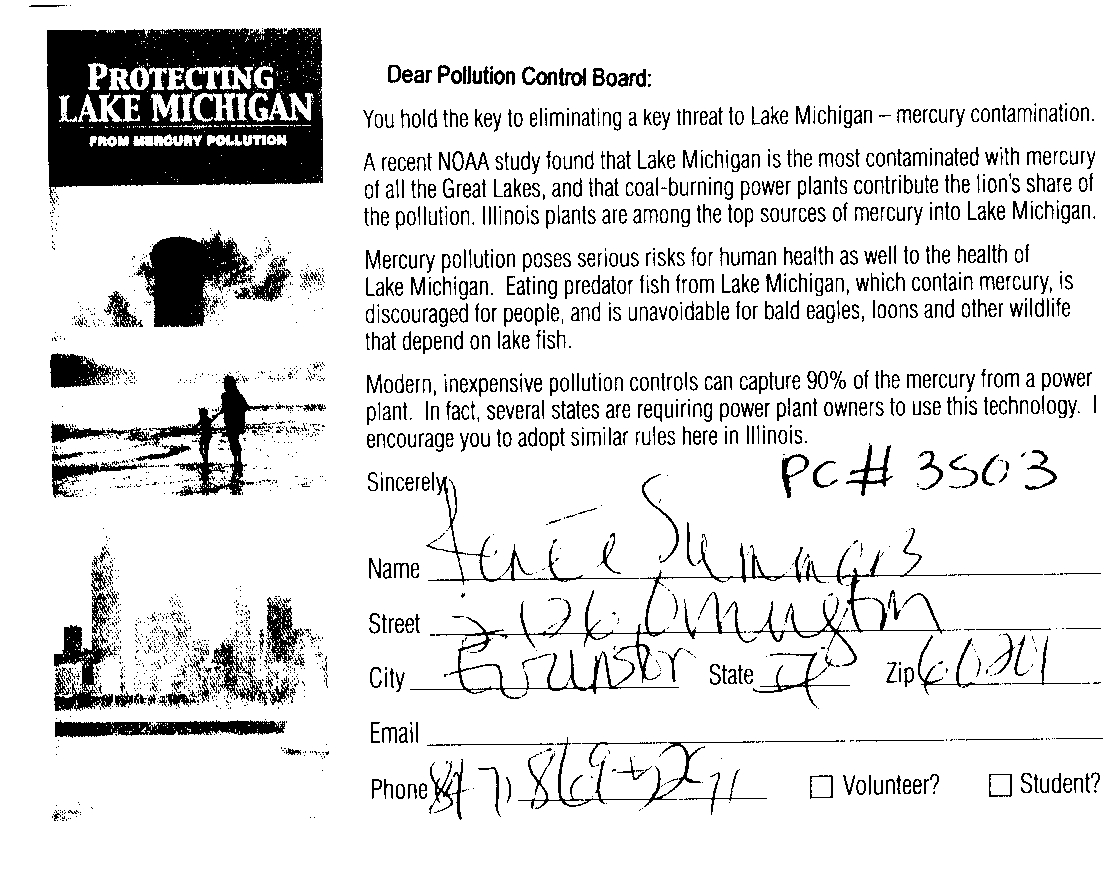 PROTECTING
LAKE MICHIGAN
FROM MERCURY POLLUTION
Dear Pollution Control Board:
You hold the key to eliminating a key threat to Lake Michigan – mercury contamination.
A recent NOAA study found that Lake Michigan is the most contaminated with mercury
of all the Great Lakes, and that coal-burning power plants contribute the lion's share of
the pollution. Illinois plants are among the top sources of mercury into Lake Michigan.
Mercury pollution poses serious risks for human health as well to the health of
Lake Michigan. Eating predator fish from Lake Michigan, which contain mercury, is
discouraged for people, and is unavoidable for bald eagles, loons and other wildlife
that depend on lake fish.
Modern, inexpensive pollution controls can capture 90% of the mercury from a power
plant. In fact, several states are requiring power plant owners to use this technology. I
encourage you to adopt similar rules here in Illinois.
Sincerely,
PC# 3503
Name Renée Summers
Street
City Evanston State Zip 60201
Email
Phone 847) 869
Volunteer? Student?